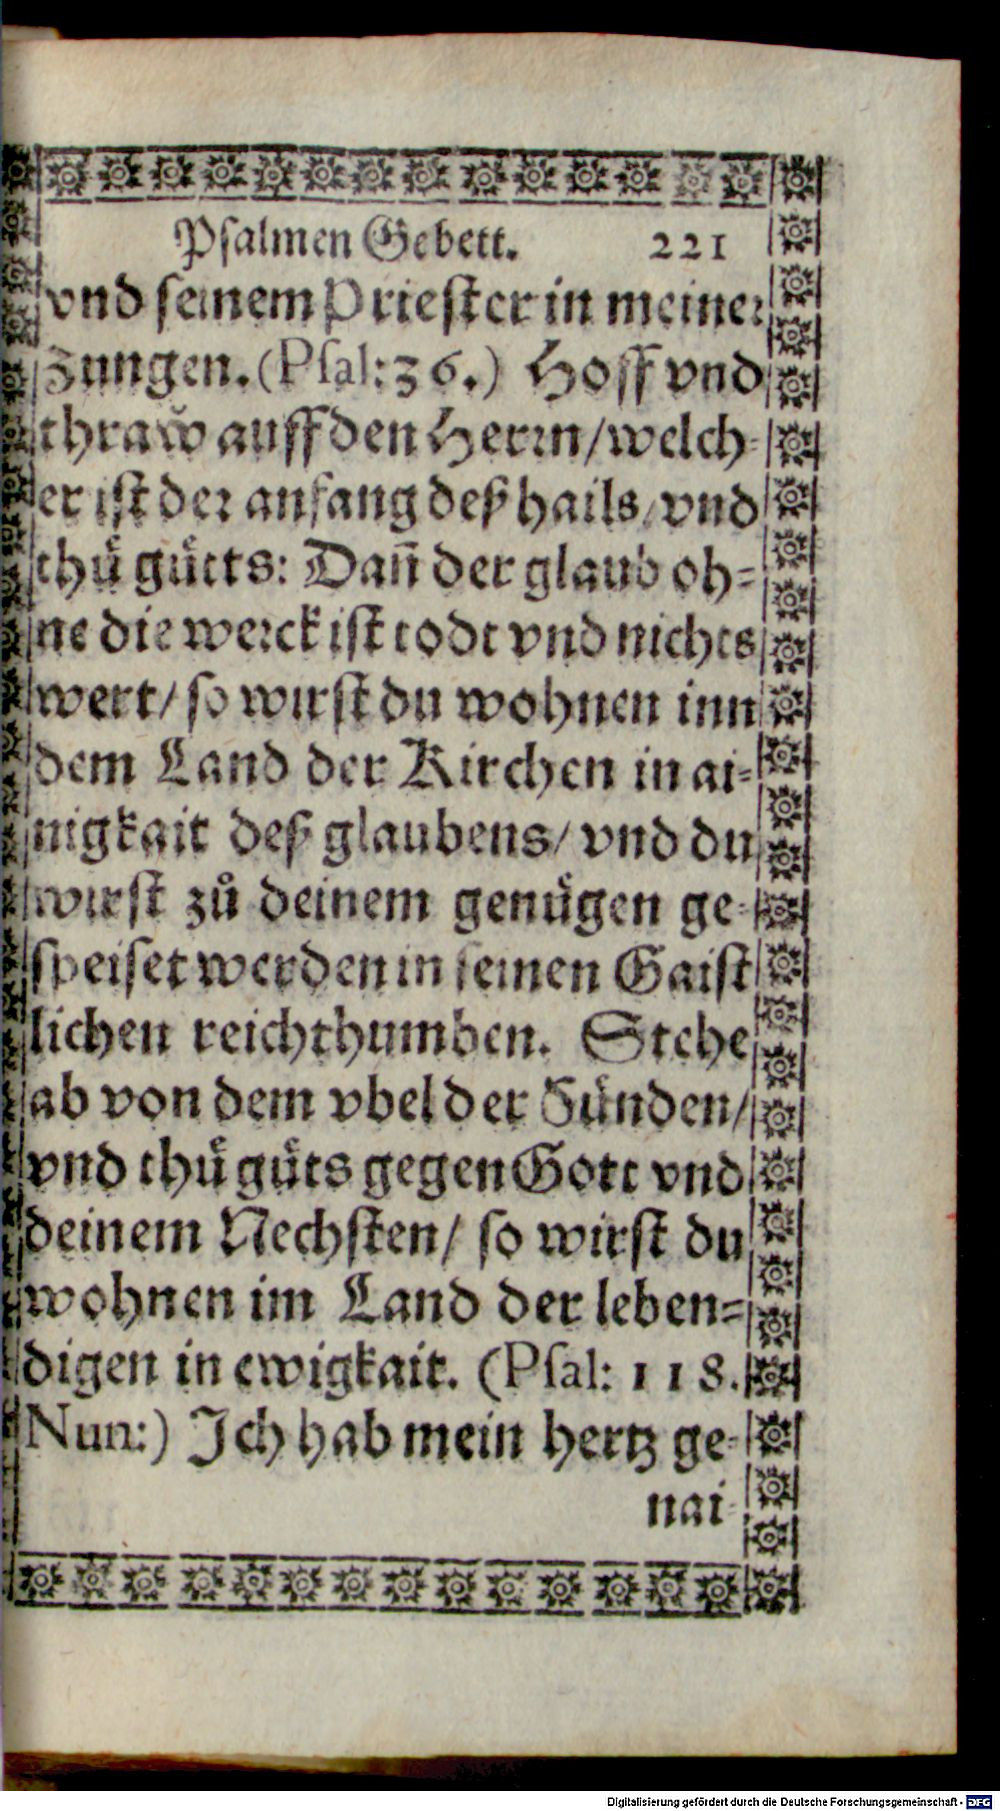 Psalmen Gebett. 221
vnd seinem Priester in meiner
Zungen. (Psal: 36.) Hoff vnd
thraw̆ auff den Herrn/ welch-
er ist der anfang deß hails/ vnd
thuͤ guͤtts: Dañ der glaub oh-
ne die werck ist todt vnd nichts
wert/ so wirst du wohnen inn
dem Land der Kirchen in ai-
nigkait deß glaubens/ vnd du
wirst zuͦ deinem genuͤgen ge-
speiset werden in seinen Gaist
lichen reichthumben. Stehe
ab von dem vbel der Suͤnden/
vnd thuͤ guͤts gegen Gott vnd
deinem Nechsten/ so wirst du
wohnen im Land der leben-
digen in ewigkait. (Psal: 118.
Nun:) Ich hab mein hertz ge-
nai-
Digitalisierung gefördert durch die Deutsche Forschungsgemeinschaft - DFG